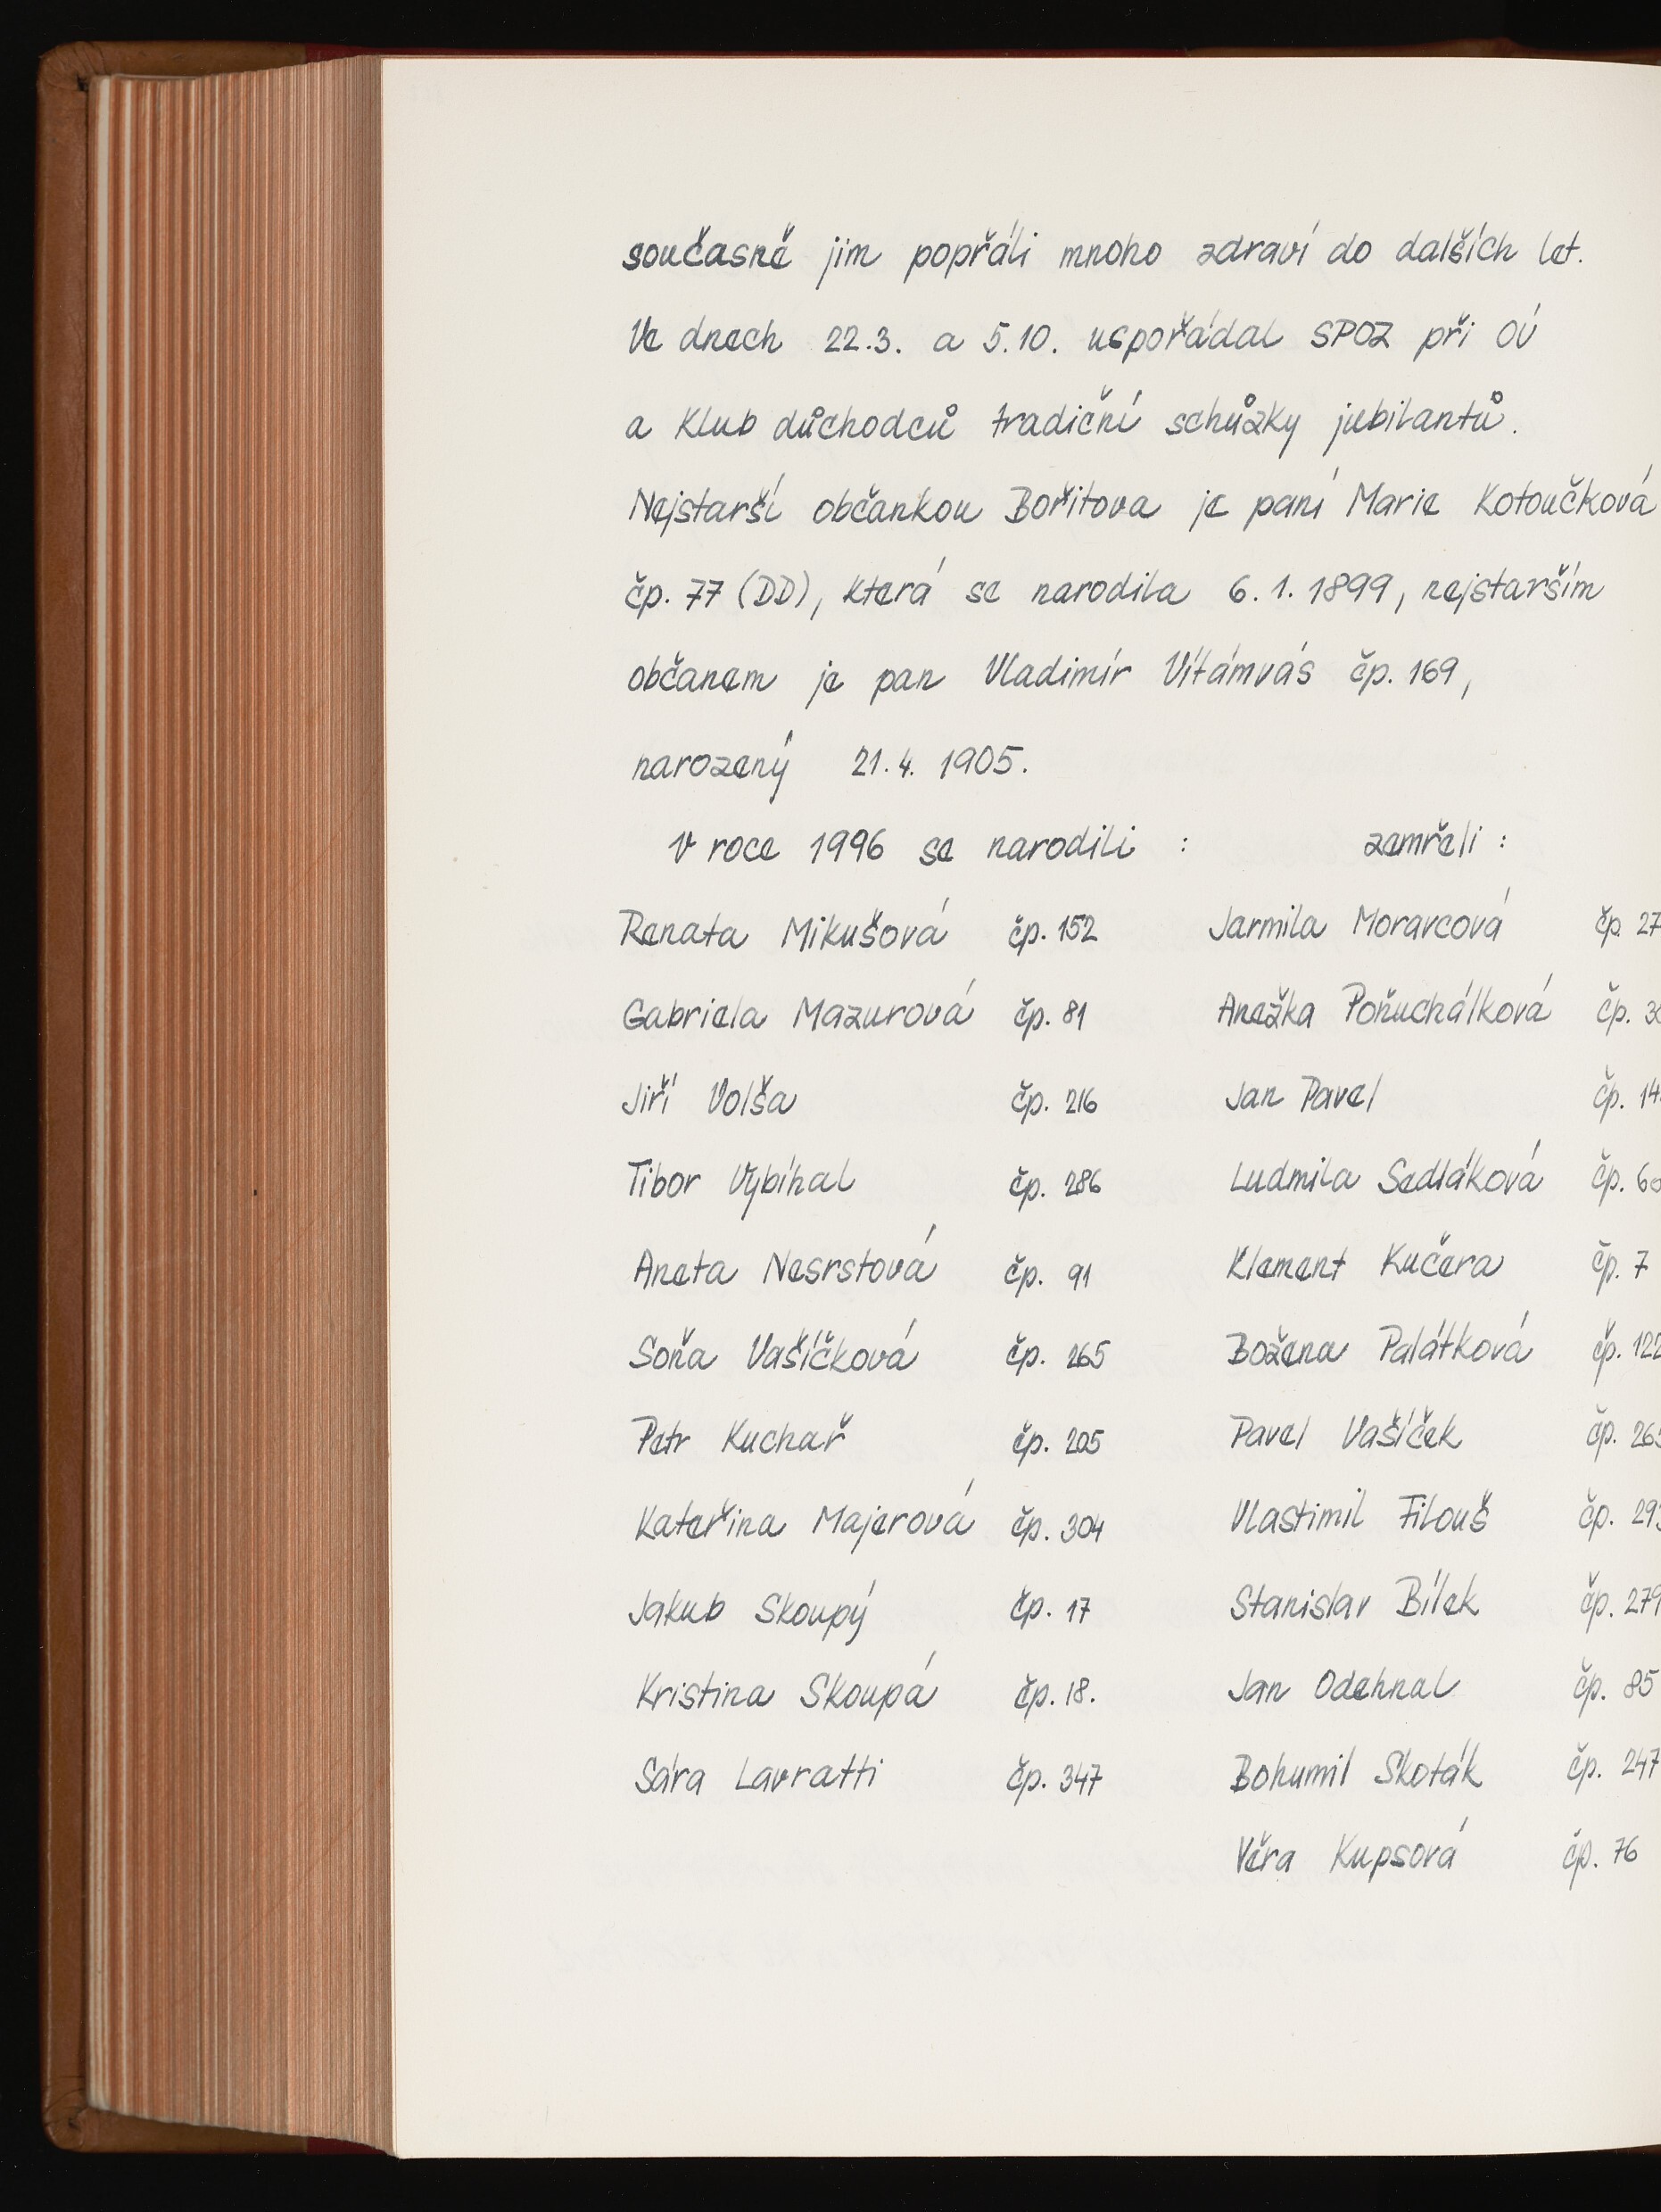 současně jim popřáli mnoho zdraví do dalších let.
Ve dnech 22.3. a 5.10. uspořádal SPOZ při OÚ
a Klub důchodců tradiční schůzky jubilantů.
Nejstarší občankou Bořitova je paní Marie Kotoučková
čp. 77 (DD), která se narodila 6.1.1899, nejstarším
občanem je pan Vladimír Vítámvás čp. 169,
narozený 21.4. 1905.
V roce 1996 se narodili : zemřeli :
Renata Mikušová čp. 152 Jarmila Moravcová čp. 27
Gabriela Mazurová čp. 81 Anežka Poňuchálková čp.
Jiří Volša čp. 216 Jan Pavel čp. 14
Tibor Vybíhal čp. 286 Ludmila Sedláková čp.
Aneta Nesrstová čp. 91 Klement Kučera čp. 7
Soňa Vašíčková čp. 265 Božena Palátková čp. 122
Petr Kuchař čp. 205 Pavel Vašíček čp. 265
Kateřina Majerová čp. 304 Vlastimil Filouš čp.
Jakub Skoupý čp. 17 Stanislav Bílek čp. 279
Kristina Skoupá čp. 18. Jan Odehnal čp. 85
Sára Lavratti čp. 347 Bohumil Skoták čp. 247
Věra Kupsová čp. 76